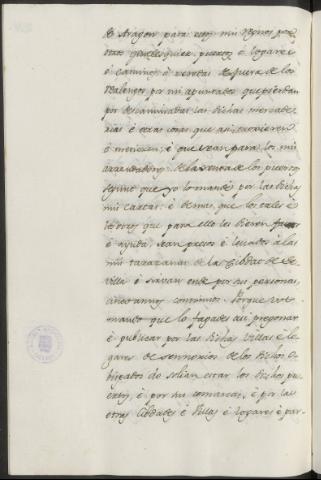 de Aragon para estos mis regnos por
otros qualesquier puertos é logares
é caminos é veredas de fuera de los
Realengos por mi apuntados que pierdan
por descaminadas las dichas mercade
rias é otras cosas que asi traxieren
é metieren, é que sean para los mis
arrendadores de la renta de los puertos
segunt que yo lo mande por las dichas
mis cartas: é demas que los tales é
los otros que para ello les dieren favor
é ayuda, sean presos é levados á las
mis tarazanas de la Cibdat de Se
villa é sirvan ende por sus personas
anno continuos. Porque vos
mando que lo fagades asi pregonar
é publicar por las dichas Villas é lo
gares de sennorios de los dichos O
bispados do solian estar los dichos pu
ertos, é por su comarca, é por las
otras Cibdades é Villas é logares é par